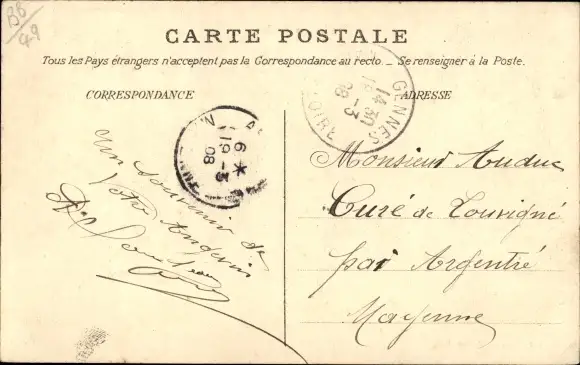 BB
49
CARTE POSTALE
Tous les Pays étrangers n'acceptent pas la Correspondance au recto. _ Se renseigner à la Poste.
CORRESPONDANCE
ADRESSE
GENNES
14 30
18 - 3
08
LOIRE
6 *
19 - 3
08
Un souvenir de
Votre Angevin
Monsieur Auduc
Curé de Louvigné
par Argentré
Mayenne